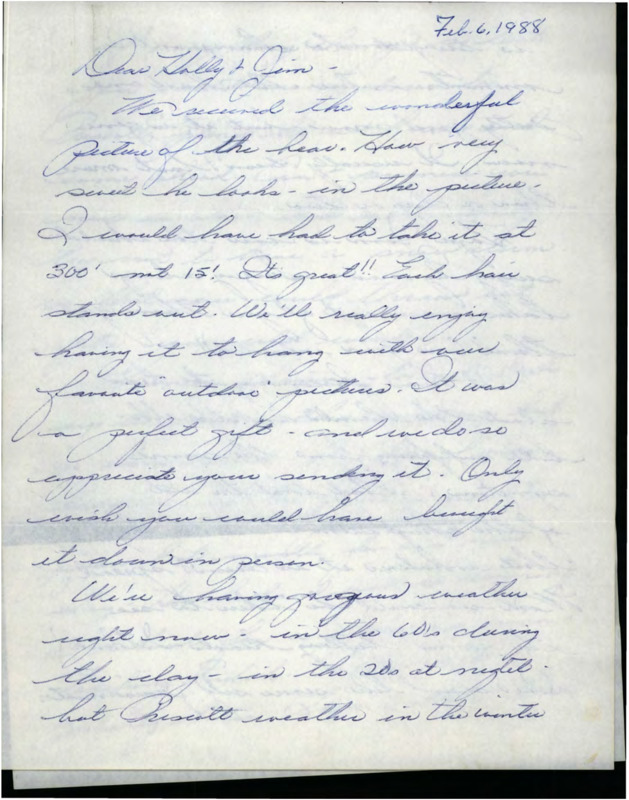 Feb. 6, 1988
Dear Holly & Jim -
We received the wonderful
picture of the bear. How very
sweet he looks - in the picture.
I would have had to take it at
300' not 15! It's great!! Each hair
stands out. We'll really enjoy
having it to hang with our
favorite "outdoor" pictures. It was
a perfect gift - and we do so
appreciate your sending it. Only
wish you would have brought
it down in person.
We're having gorgeous weather
right now - in the 60s during
the day - in the 20s at night -
but Prescott weather in the winter